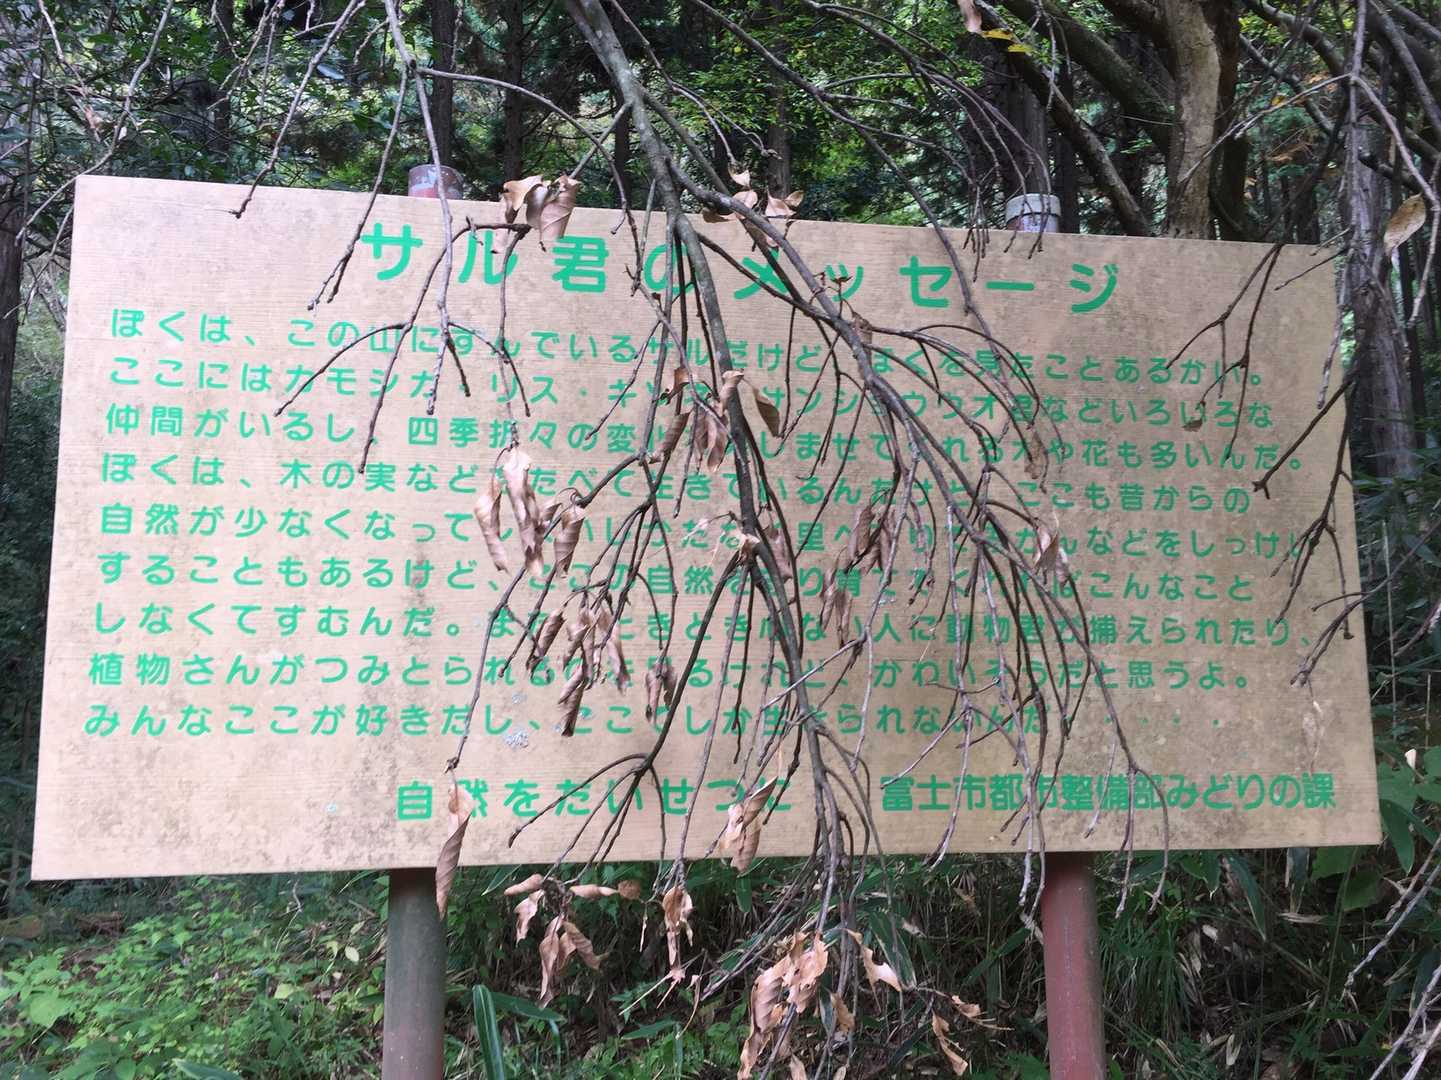 サル君のメッセージ
ぼくは、この山にすんでいるサルだけど、ぼくを見たことあるかい。
ここにはカモシカ・リス・キツネ・サンショウウオ君などいろいろな
仲間がいるし、四季折々の変化を楽しませてくれる木や花も多いんだ。
ぼくは、木の実などをたべて生きているんだけど、ここも昔からの
自然が少なくなってしまいしかたなく里へおりてみかんなどをしっけい
することもあるけど、ここの自然を守り育ててくれればこんなこと
しなくてすむんだ。また、ときどき心ない人に動物君が捕えられたり、
植物さんがつみとられるのを見るけれど、かわいそうだと思うよ。
みんなここが好きだし、ここでしか生きられないんだ。・・・・
自然をたいせつに　富士市都市整備部みどりの課